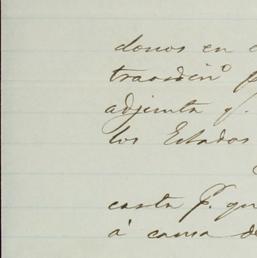 donos en
traordin.º
adjunta q.
los Estados
carta p.
á causa de